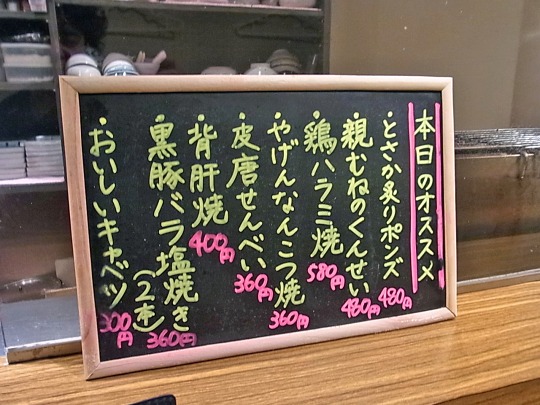 本日のオススメ
・とさか炙りポンズ 480円
・親むねのくんせい 480円
・鶏ハラミ焼 580円
・やげんなんこつ焼 360円
・皮唐せんべい 360円
・背肝焼 400円
・黒豚バラ塩焼き(2本) 360円
・おいしいキャベツ 300円